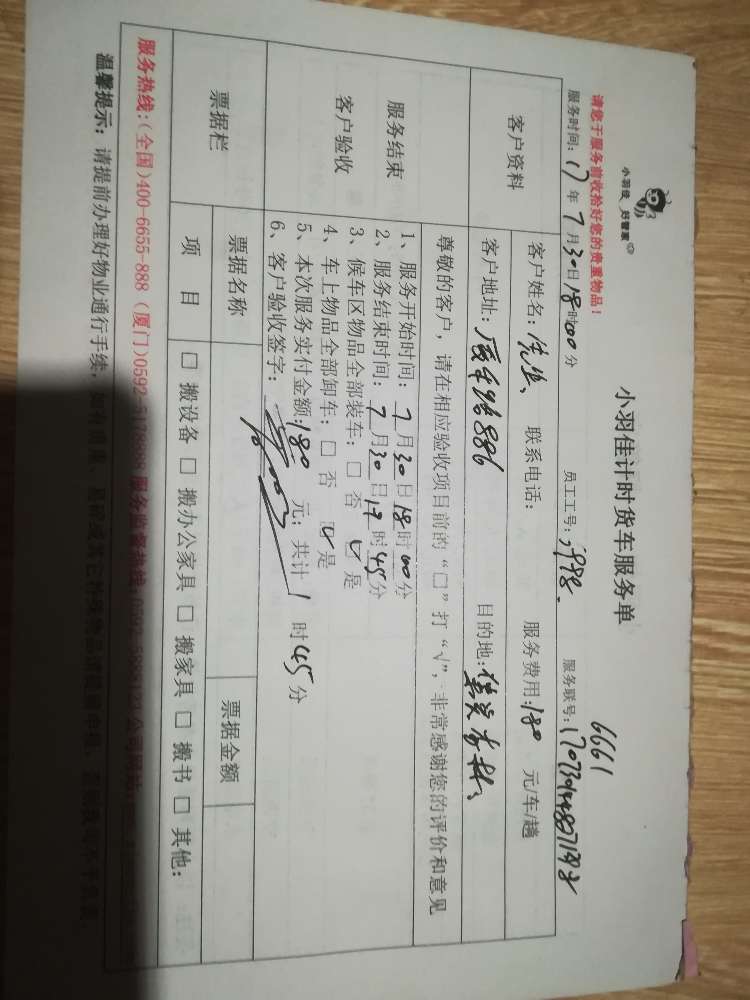 小羽佳 好管家
请您于服务前收拾好您的贵重物品！
小羽佳计时货车服务单
6661
服务时间：17年7月30日18时00分 员工工号： 服务联号：
客户资料
客户姓名：先生 联系电话： 服务费用：180 元/车/趟
客户地址： 目的地：
服务结束
客户验收
尊敬的客户，请在相应验收项目前的“□”打“√”，非常感谢您的评价和意见
1、服务开始时间：7月30日18时00分
2、服务结束时间：7月30日19时45分
3、候车区物品全部装车：□ 否 √ 是
4、车上物品全部卸车：□ 否 √ 是
5、本次服务实付金额：180 元；共计 1 时 45 分
6、客户验收签字：
票据栏
票据名称 票据金额
项 目 □ 搬设备 □ 搬办公家具 □ 搬家具 □ 搬书 □ 其他：
服务热线：(全国)400-6655-888 (厦门)0592-5178888 服务监督热线：
温馨提示：请提前办理好物业通行手续，